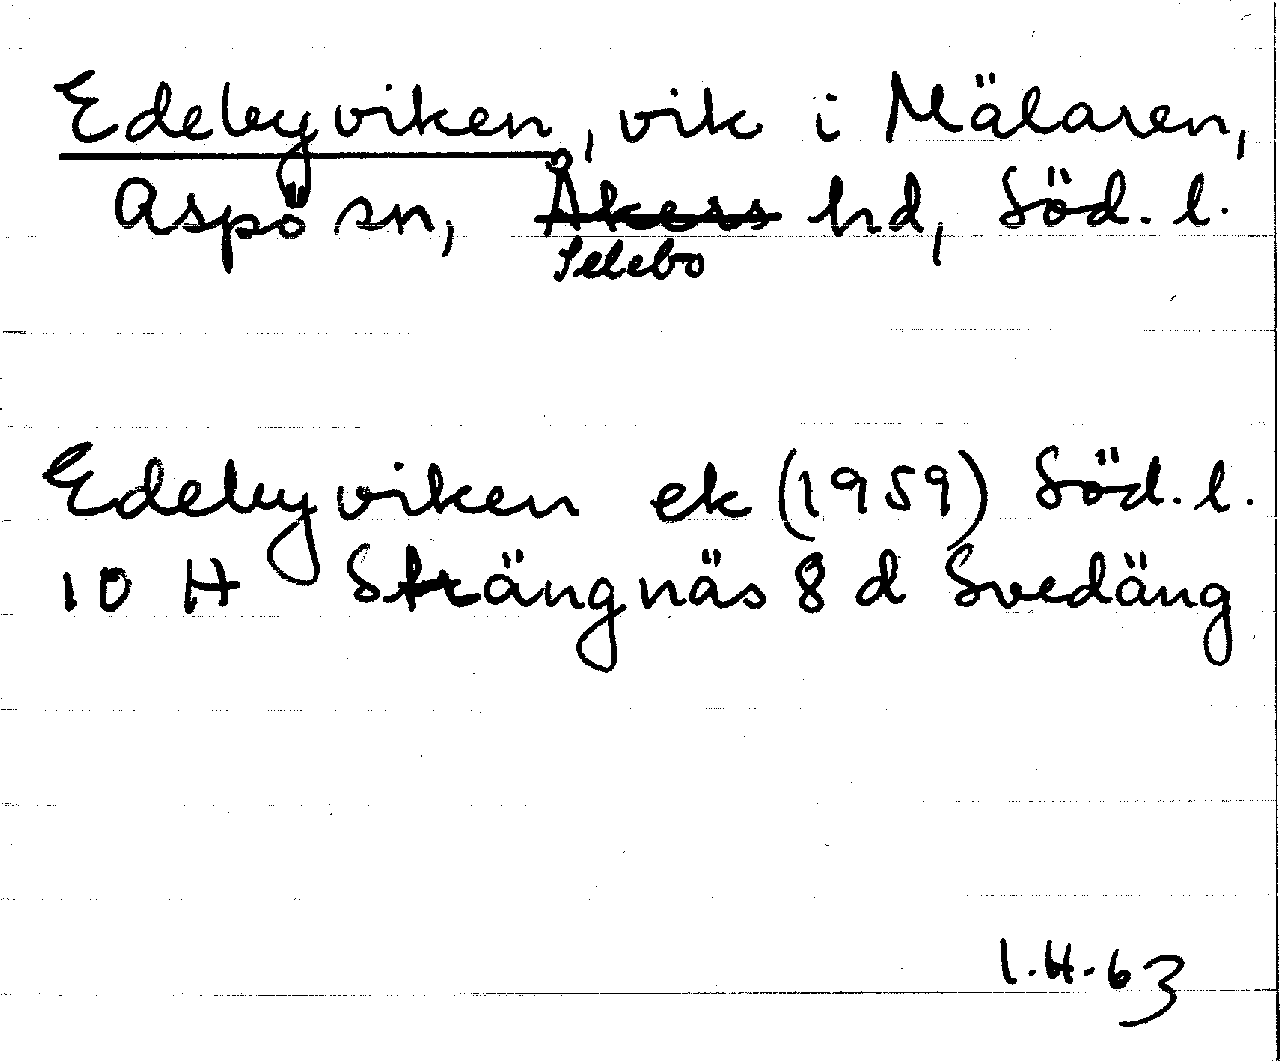 Edebyviken, vik i Mälaren,
Aspö sn, Åkers hd, Söd. l.
Selebo
Edebyviken ek (1959) Söd. l.
10 H Strängnäs 8 d Svedäng
I.H.63